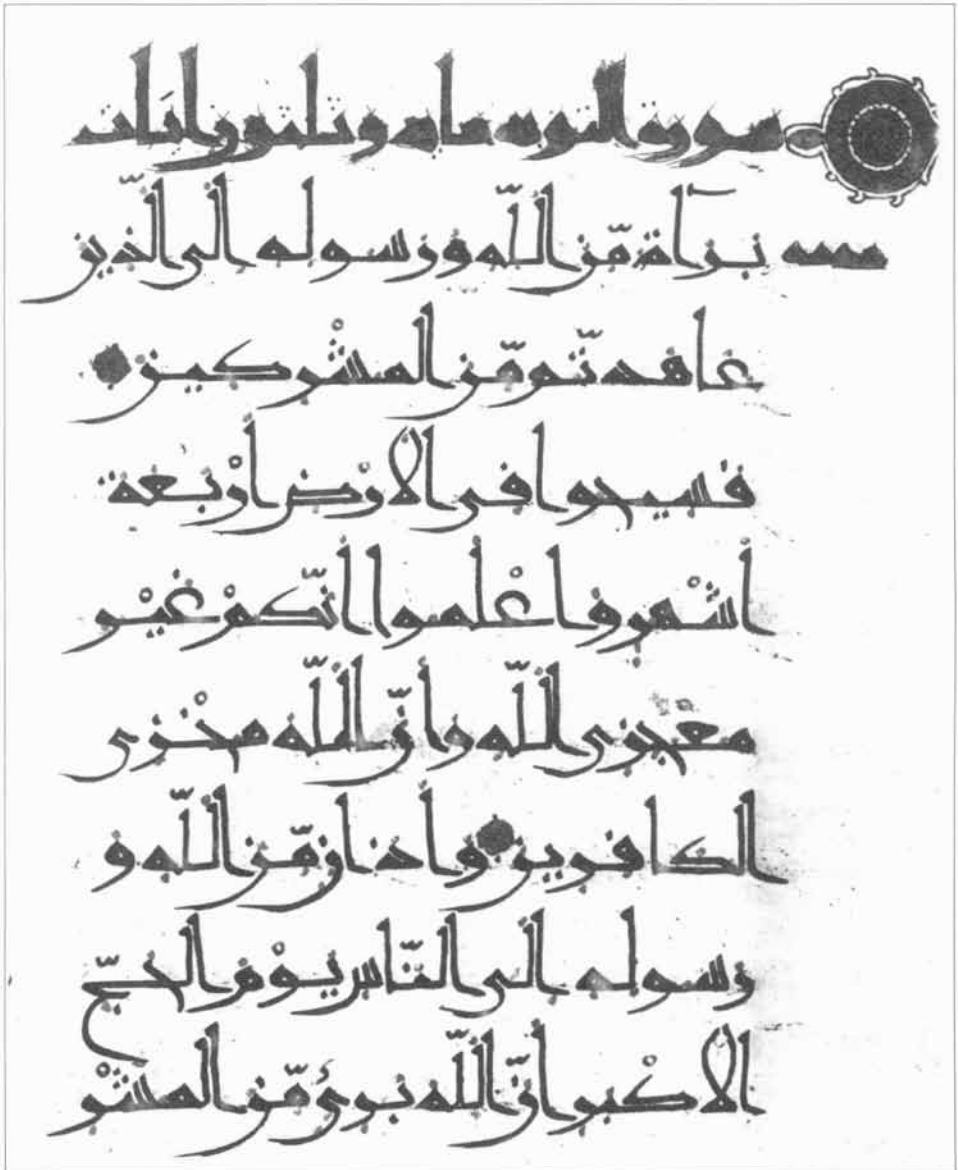 سورة التوبة مائة وثلثون آيات
براءة مّن اللّه ورسوله الى الّذين
عاهدتّم مّن المشْركين
فسيحوا فى الارْض أرْبعة
أشْهر واعْلموا أنّكمْ غيْر
معْجزى اللّه وأنّ اللّه مخْزى
الكافرين وأذان مّن اللّه و
رسوله الى النّاس يوْم الحجّ
الاكْبر أنّ اللّه برىء مّن المشْر